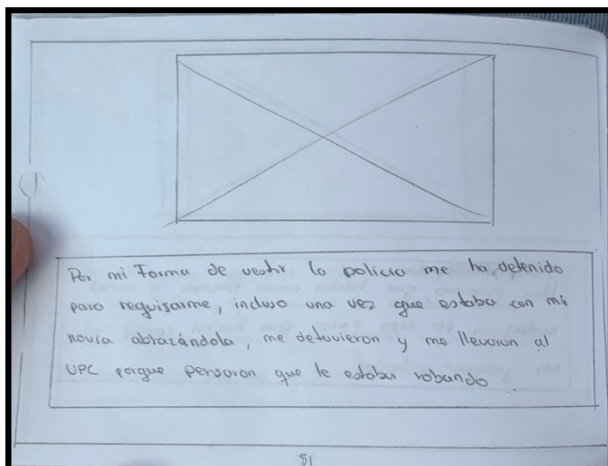 Por mi Forma de vestir la policía me ha detenido
para requisarme, incluso una vez que estaba con mi
novia abrazándola, me detuvieron y me llevaron al
UPC porque pensaron que le estaba robando.
81